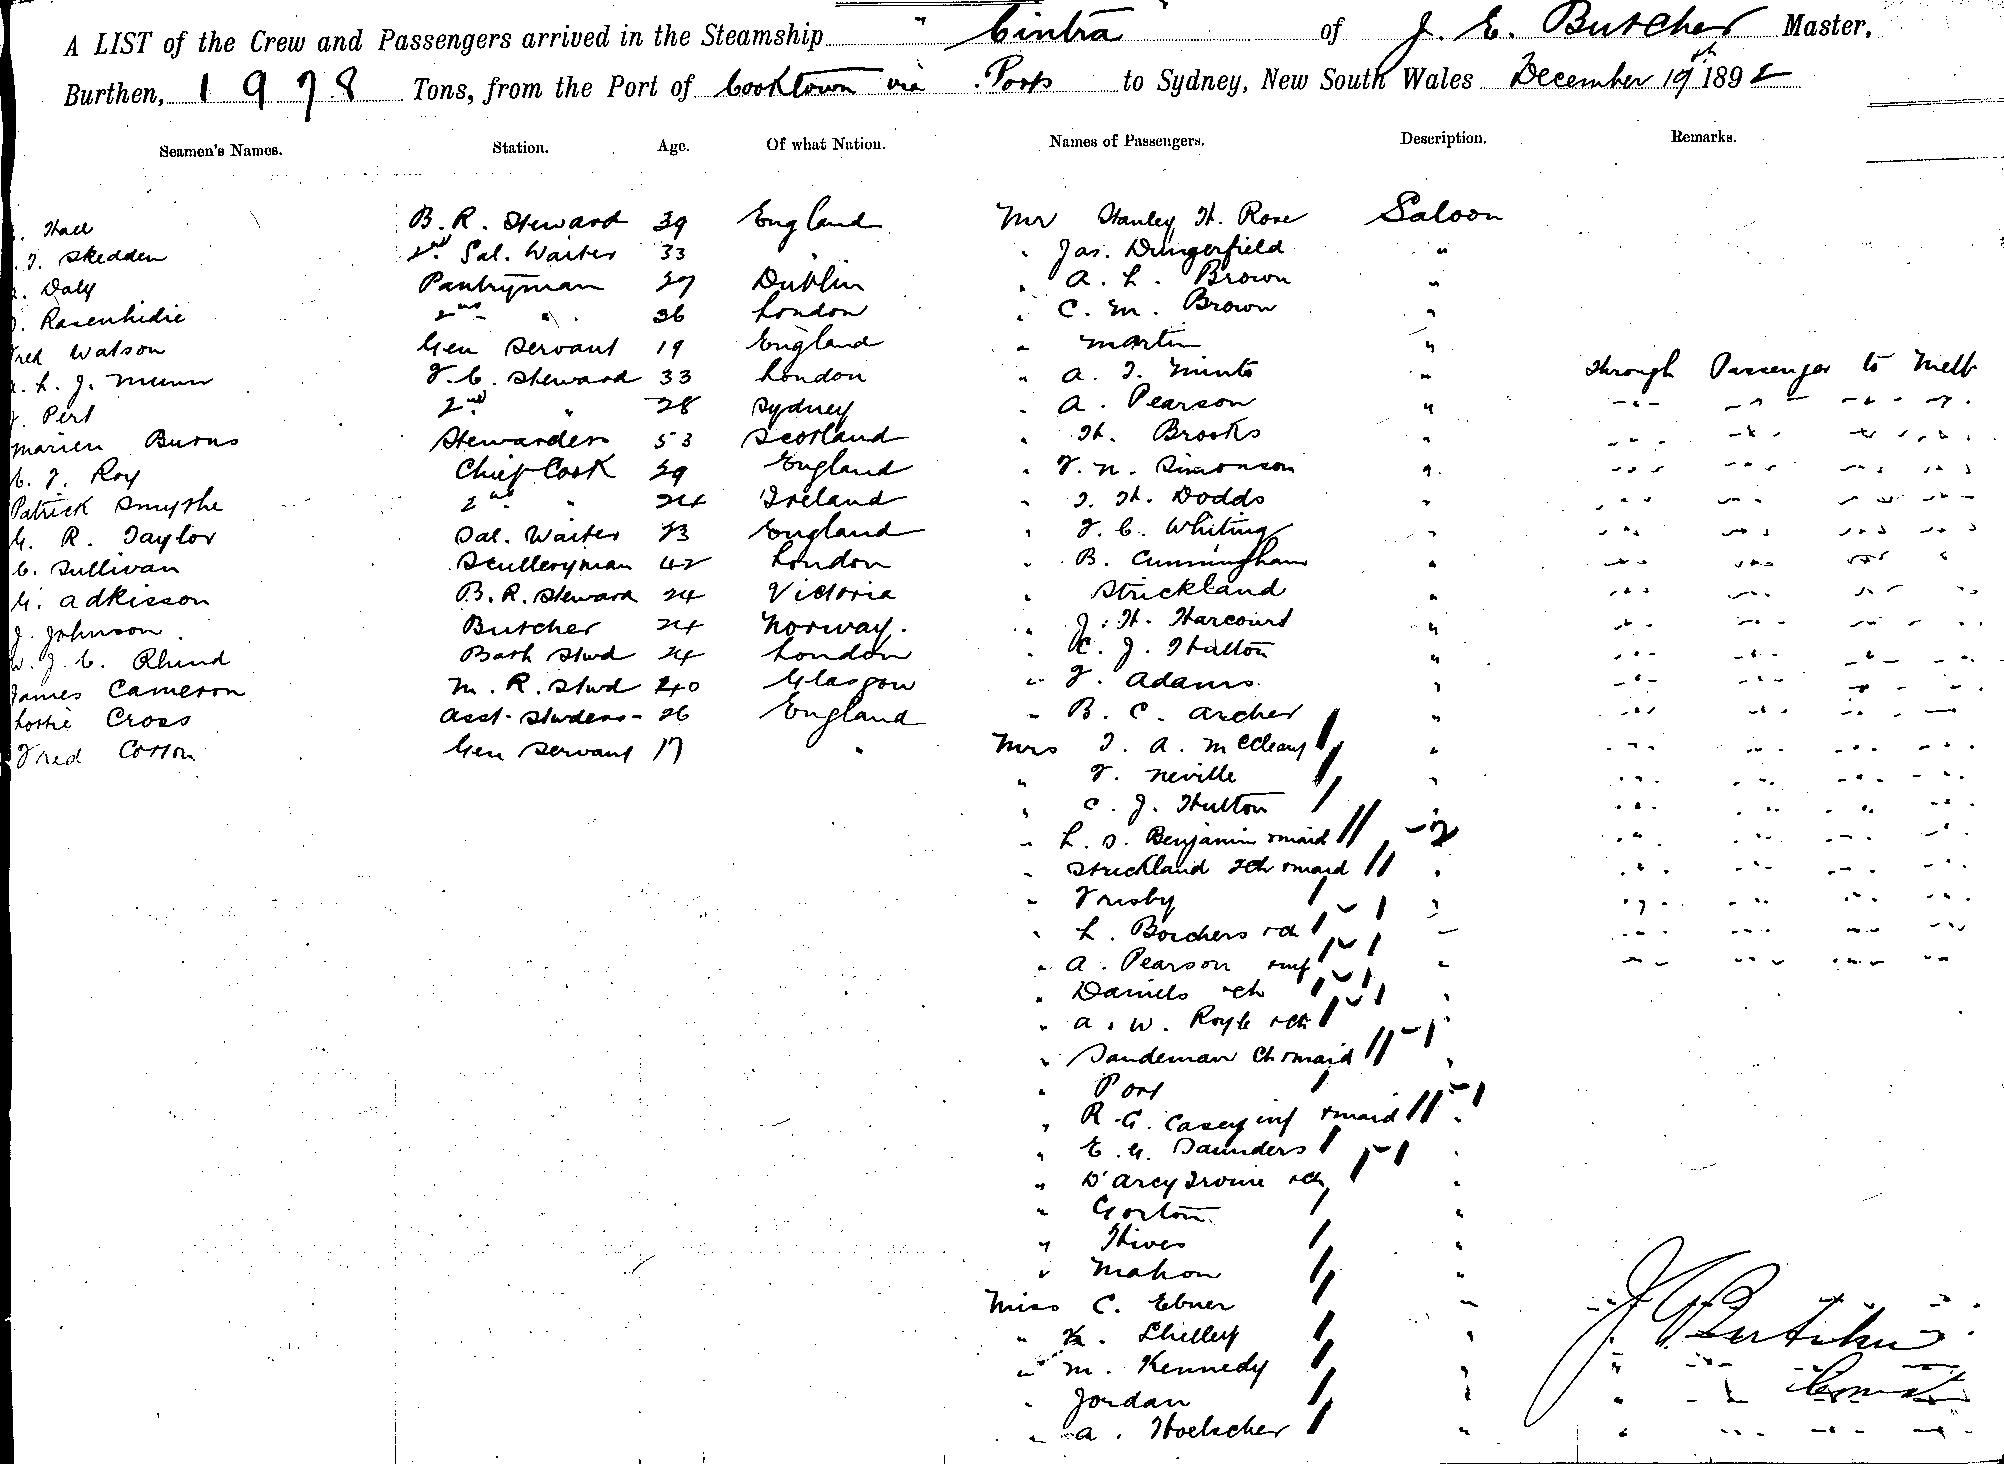 A LIST of the Crew and Passengers arrived in the Steamship "Cintra" of J. E. Butcher Master,
Burthen, 1978 Tons, from the Port of Cooktown via Ports to Sydney, New South Wales December 19th 1892
Seamen's Names. Station. Age. Of what Nation. Names of Passengers. Description. Remarks.
Hall B. R. Steward 39 England Mr Stanley H. Rose Saloon
J. Skedden 2nd Sal. Waiter 33 " Jas. Dungerfield "
Daly Pantryman 29 Dublin " A. L. Brown "
Rasenhidie 2nd " 36 London " C. M. Brown "
Fred Watson Gen Servant 19 England " Martin "
L. J. Munn F. C. Steward 33 London " A. J. Minto " Through Passenger to Melb
Pert 2nd " 28 Sydney " A. Pearson " " " " "
Marien Burns Stewardess 53 Scotland " H. Brooks " " " " "
C. J. Roy Chief Cook 29 England " F. N. Simonson " " " " "
Patrick Smythe 2nd " 24 Ireland " J. H. Dodds " " " " "
G. R. Taylor Sal. Waiter 23 England " F. C. Whiting " " " " "
C. Sullivan Sculleryman 42 London " B. Cunningham " " " " "
G. Adkisson B. R. Steward 24 Victoria " Strickland " " " " "
J. Johnson Butcher 24 Norway. " J. H. Harcourt " " " " "
W. J. C. Rhind Bath Stwd 24 London " C. J. Hulton " " " " "
James Cameron M. R. Stwd 40 Glasgow " F. Adams " " " " "
Lottie Cross Asst. Stwdess 26 England " B. C. Archer " " " " "
Fred Cotton Gen Servant 17 " Mrs J. A. McCleary " " " " "
" F. Neville " " " " "
" C. J. Hulton " " " " "
" L. S. Benjamin & maid 2 " " " "
" Strickland 2ch & maid " " " " "
" Frisby " " " " "
" L. Borchers & ch " " " " "
" A. Pearson & inf " " " " "
" Daniels & ch "
" A. W. Royle & ch
" Sandeman ch & maid "
" Port
" R. G. Casey inf & maid "
" E. G. Saunders "
" D'Arcy Irvine & ch "
" Gorton "
" Hives "
" Mahon "
Miss C. Ebner "
" K. Shelley " J E Butcher
" M. Kennedy "
" Jordan "
" A. Hoelscher " " " " "